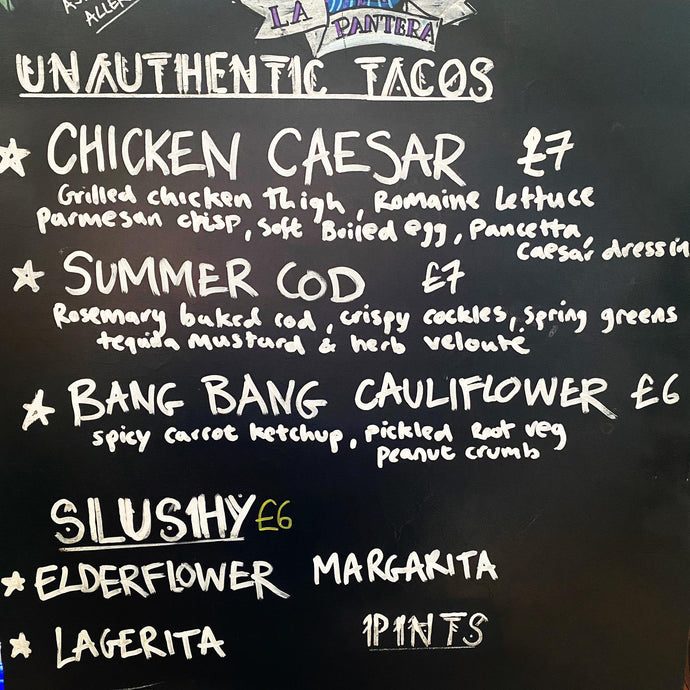 ALLER
LA PANTERA
UNAUTHENTIC TACOS
CHICKEN CAESAR £7
Grilled chicken thigh, Romaine lettuce
parmesan crisp, soft Boiled egg, Pancetta,
caesar dressin
SUMMER COD £7
Rosemary baked cod, crispy cockles, spring greens
tequila mustard & herb velouté
BANG BANG CAULIFLOWER £6
spicy carrot ketchup, pickled Root veg
peanut crumb
SLUSHY £6
ELDERFLOWER MARGARITA
LAGERITA
PINTS